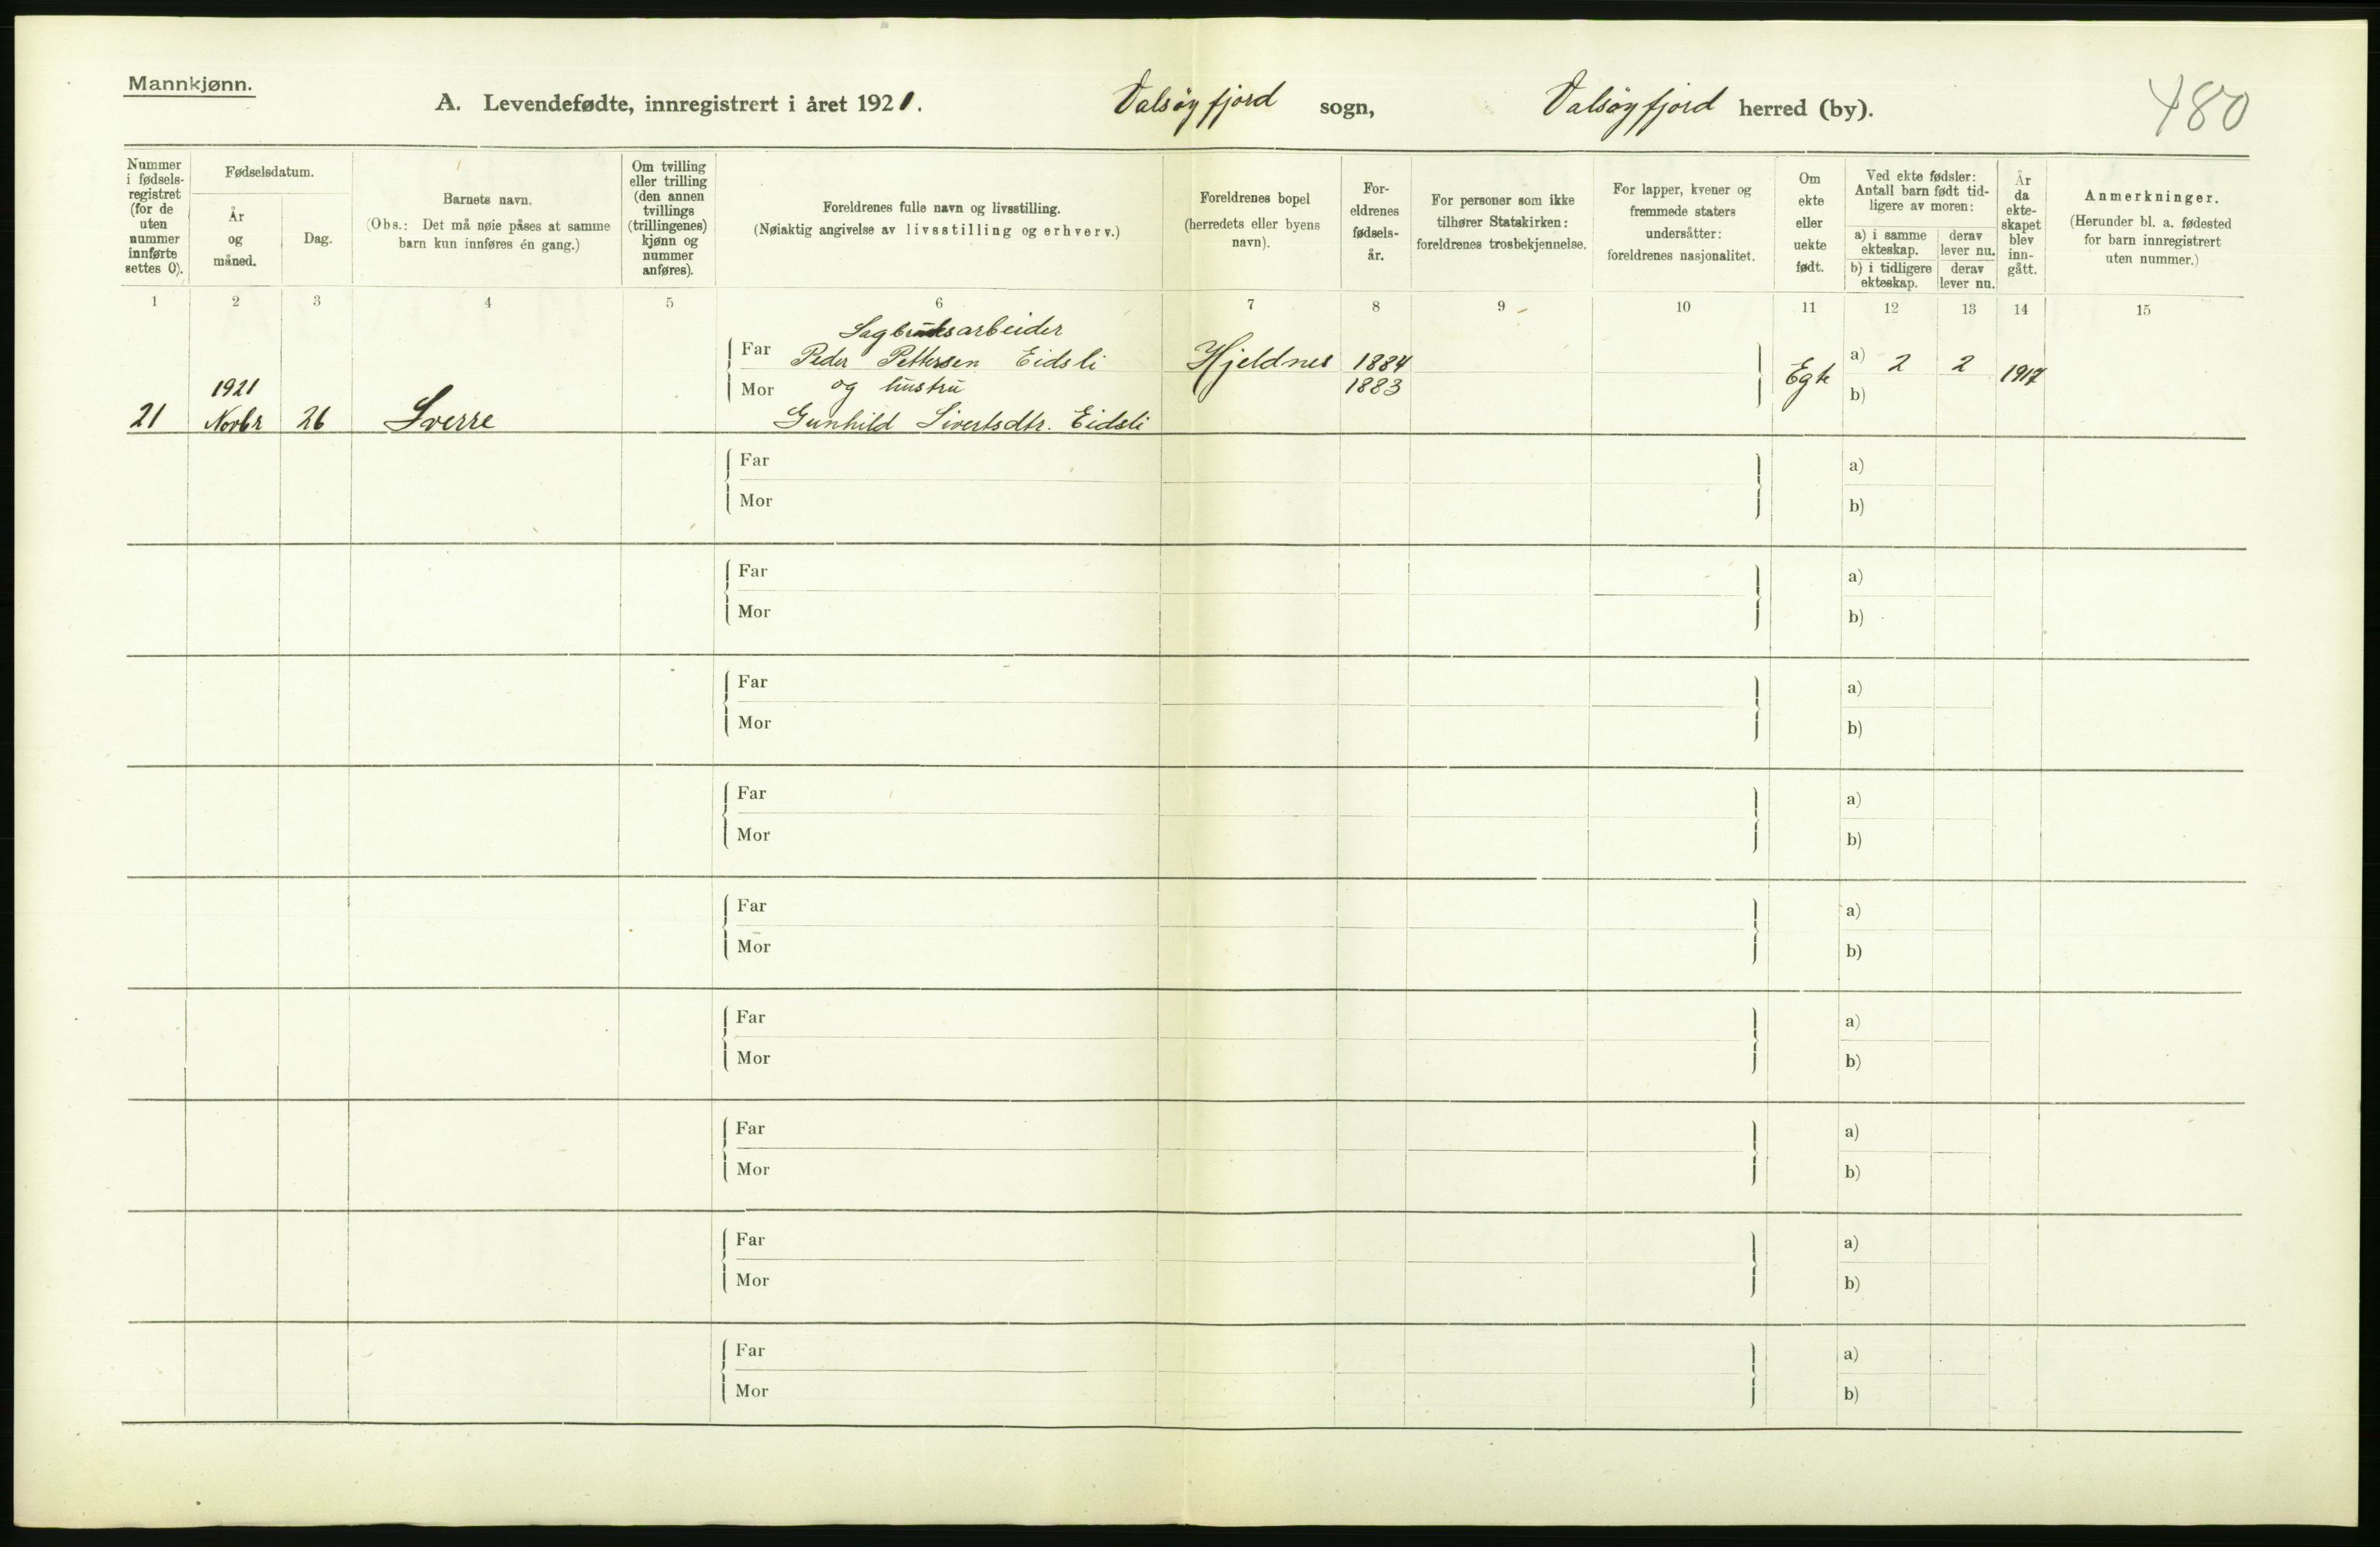 Mannkjønn.
A. Levendefødte, innregistrert i året 1921.
Valsøyfjord sogn,
Valsøyfjord herred (by).
480
Nummer
i fødsels-
registret
(for de
uten
nummer
innførte
settes 0).
Fødselsdatum.
År
og
måned.
Dag.
Barnets navn.
(Obs.: Det må nøie påses at samme
barn kun innføres én gang.)
Om tvilling
eller trilling
(den annen
tvillings
(trillingenes)
kjønn og
nummer
anføres).
Foreldrenes fulle navn og livsstilling.
(Nøiaktig angivelse av livsstilling og erhverv.)
Foreldrenes bopel
(herredets eller byens
navn).
For-
eldrenes
fødsels-
år.
For personer som ikke
tilhører Statskirken:
foreldrenes trosbekjennelse.
For lapper, kvener og
fremmede staters
undersåtter:
foreldrenes nasjonalitet.
Om
ekte
eller
uekte
født.
Ved ekte fødsler:
Antall barn født tid-
ligere av moren:
a) i samme
ekteskap.
derav
lever nu.
b) i tidligere
ekteskap.
derav
lever nu.
År
da
ekte-
skapet
blev
inn-
gått.
Anmerkninger.
(Herunder bl. a. fødested
for barn innregistrert
uten nummer.)
1 2 3 4 5 6 7 8 9 10 11 12 13 14 15
21
1921
Novbr
26
Sverre
Sagbruksarbeider
Far Peder Pettersen Eidsli
Mor og hustru
Gunhild Sivertsdtr. Eidsli
Hjeldnes
1884
1883
Egte
a) 2 2
b)
1917
Far
Mor
a)
b)
Far
Mor
a)
b)
Far
Mor
a)
b)
Far
Mor
a)
b)
Far
Mor
a)
b)
Far
Mor
a)
b)
Far
Mor
a)
b)
Far
Mor
a)
b)
Far
Mor
a)
b)